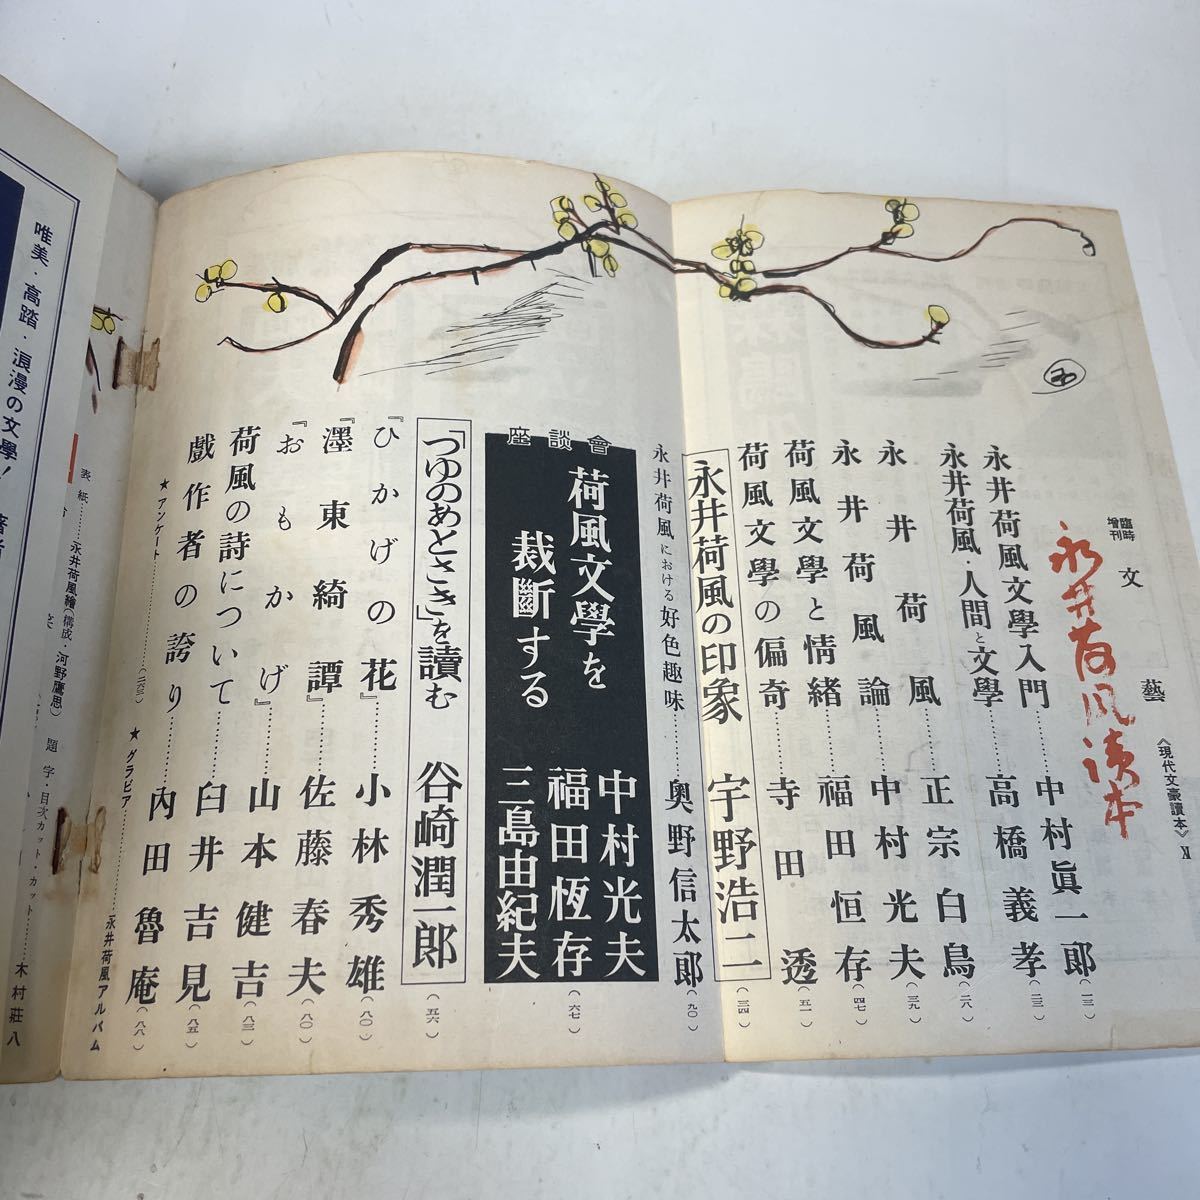 臨時増刊
文藝
永井荷風讀本
《現代文豪讀本》
永井荷風文學入門……中村眞一郎(一三)
永井荷風・人間と文學……高橋義孝(二三)
永井荷風……正宗白鳥(二八)
永井荷風論……中村光夫(三九)
荷風文學と情緒……福田恒存(四七)
荷風文學の偏奇……寺田透(五一)
永井荷風の印象 宇野浩二(三四)
永井荷風における好色趣味……奥野信太郎(九〇)
座談會
荷風文學を
裁斷する
中村光夫
福田恆存
三島由紀夫
(六七)
「つゆのあとさき」を讀む 谷崎潤一郎(五六)
『ひかげの花』……小林秀雄(八〇)
『濹東綺譚』……佐藤春夫(八〇)
『おもかげ』……山本健吉(八三)
荷風の詩について……臼井吉見(八五)
戲作者の誇り……内田魯庵(八八)
★アンケート……(二六三)
★グラビア……永井荷風アルバム
表紙……永井荷風繪(構成・河野鷹思)
題字・目次カット・カット……木村莊八
唯美・高踏・浪漫の文學！